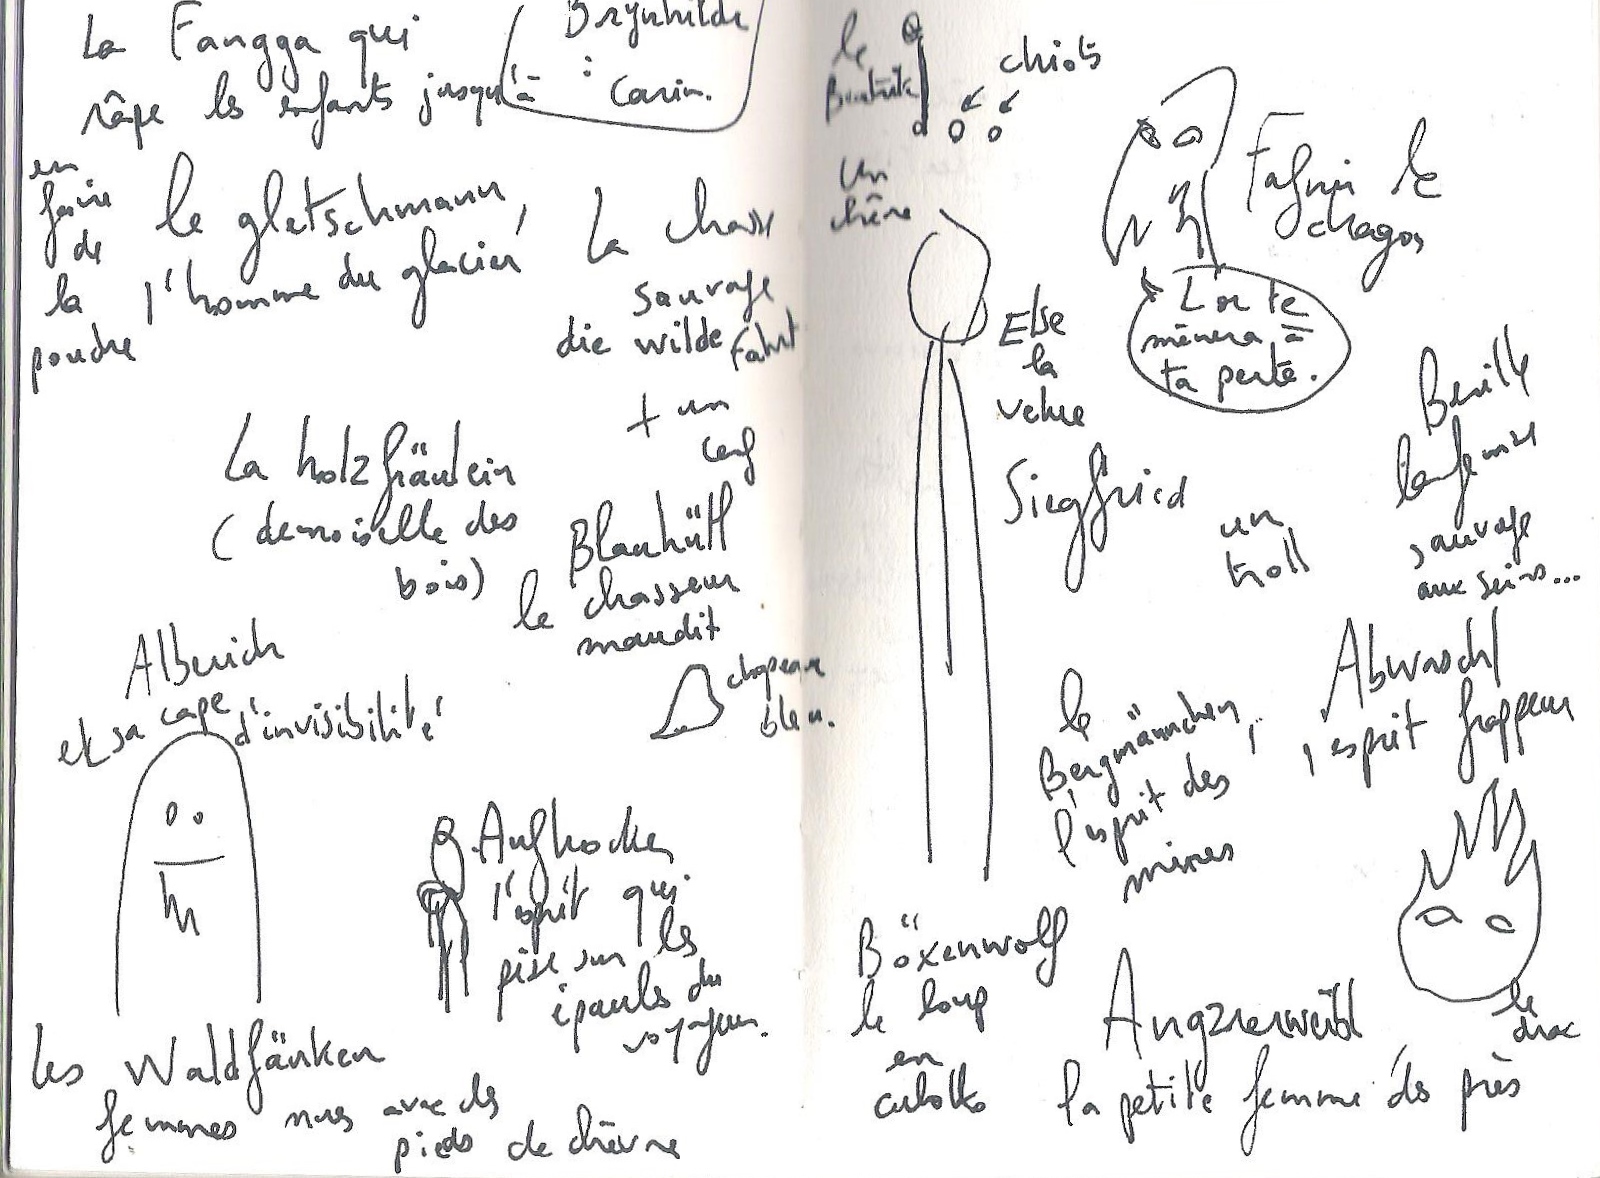 La Fangga qui
râpe les enfants jusqu'à
en
faire
de
la
poudre
Brynhilde
:
Carin.
le gletschmann,
l'homme du glacier
La chasse
sauvage
die wilde Fahrt
+ un
cerf
La holzfräulein
(demoiselle des
bois)
Blauhütl
le chasseur
maudit
chapeau
bleu.
Alberich
et sa cape
d'invisibilité
Aufhocker
l'esprit qui
pèse sur les
épaules du
voyageur.
les Waldfänken
femmes nues avec des
pieds de chèvre
le
chiots
un
chêne
Fafnir le
dragon
L'or te
mènera à
ta perte.
Else
la
velue
Siegfried
un
troll
la femme
sauvage
aux seins...
le
Bergmännchen,
l'esprit des
mines
Abwaschl
l'esprit frappeur
le
drac
Böxenwolf
le loup
en
culotte
la petite femme des près